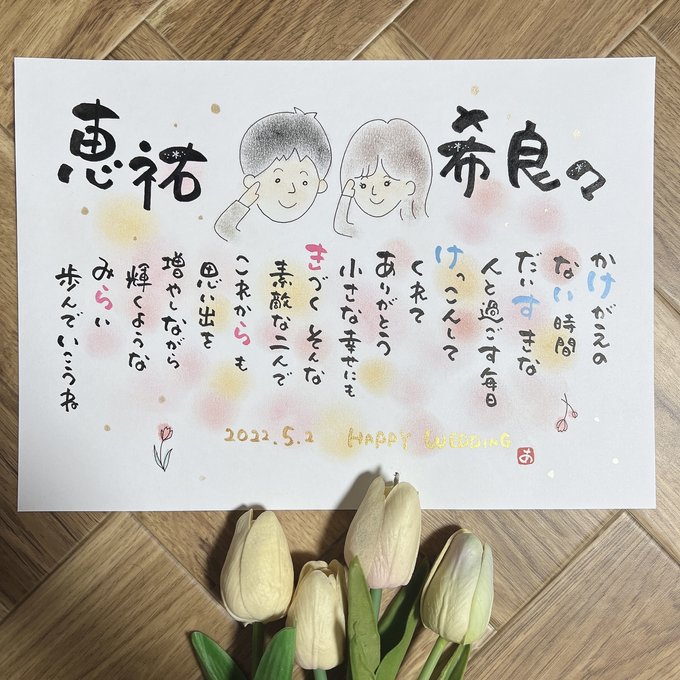 恵祐
希良々
かけがえの
ない時間
だいすきな
人と過ごす毎日
けっこんして
くれて
ありがとう
小さな幸せにも
きづくそんな
素敵な二人で
これからも
思い出を
増やしながら
輝くような
みらい
歩んでいこうね
2022.5.2 HAPPY WEDDING
お